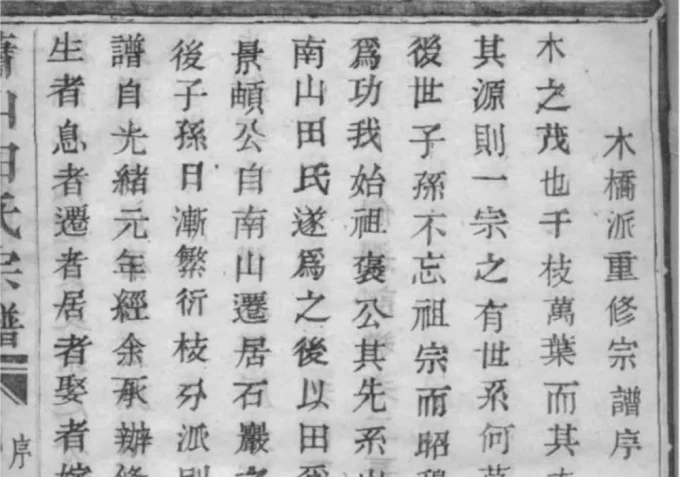 木橋派重修宗譜序
木之茂也千枝萬葉而其
其源則一宗之有世系何
後世子孫不忘祖宗而昭
爲功我始祖褒公其先系
南山田氏遂爲之後以田
景頔公自南山遷居石巖
後子孫日漸繁衍枝分派
譜自光緒元年經余承辦
生者息者遷者居者娶者
山田氏宗譜
序